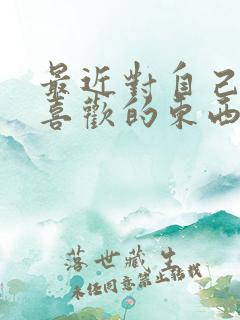 最近對自己
喜歡的東西
落世藏生
未任同意禁止轉載